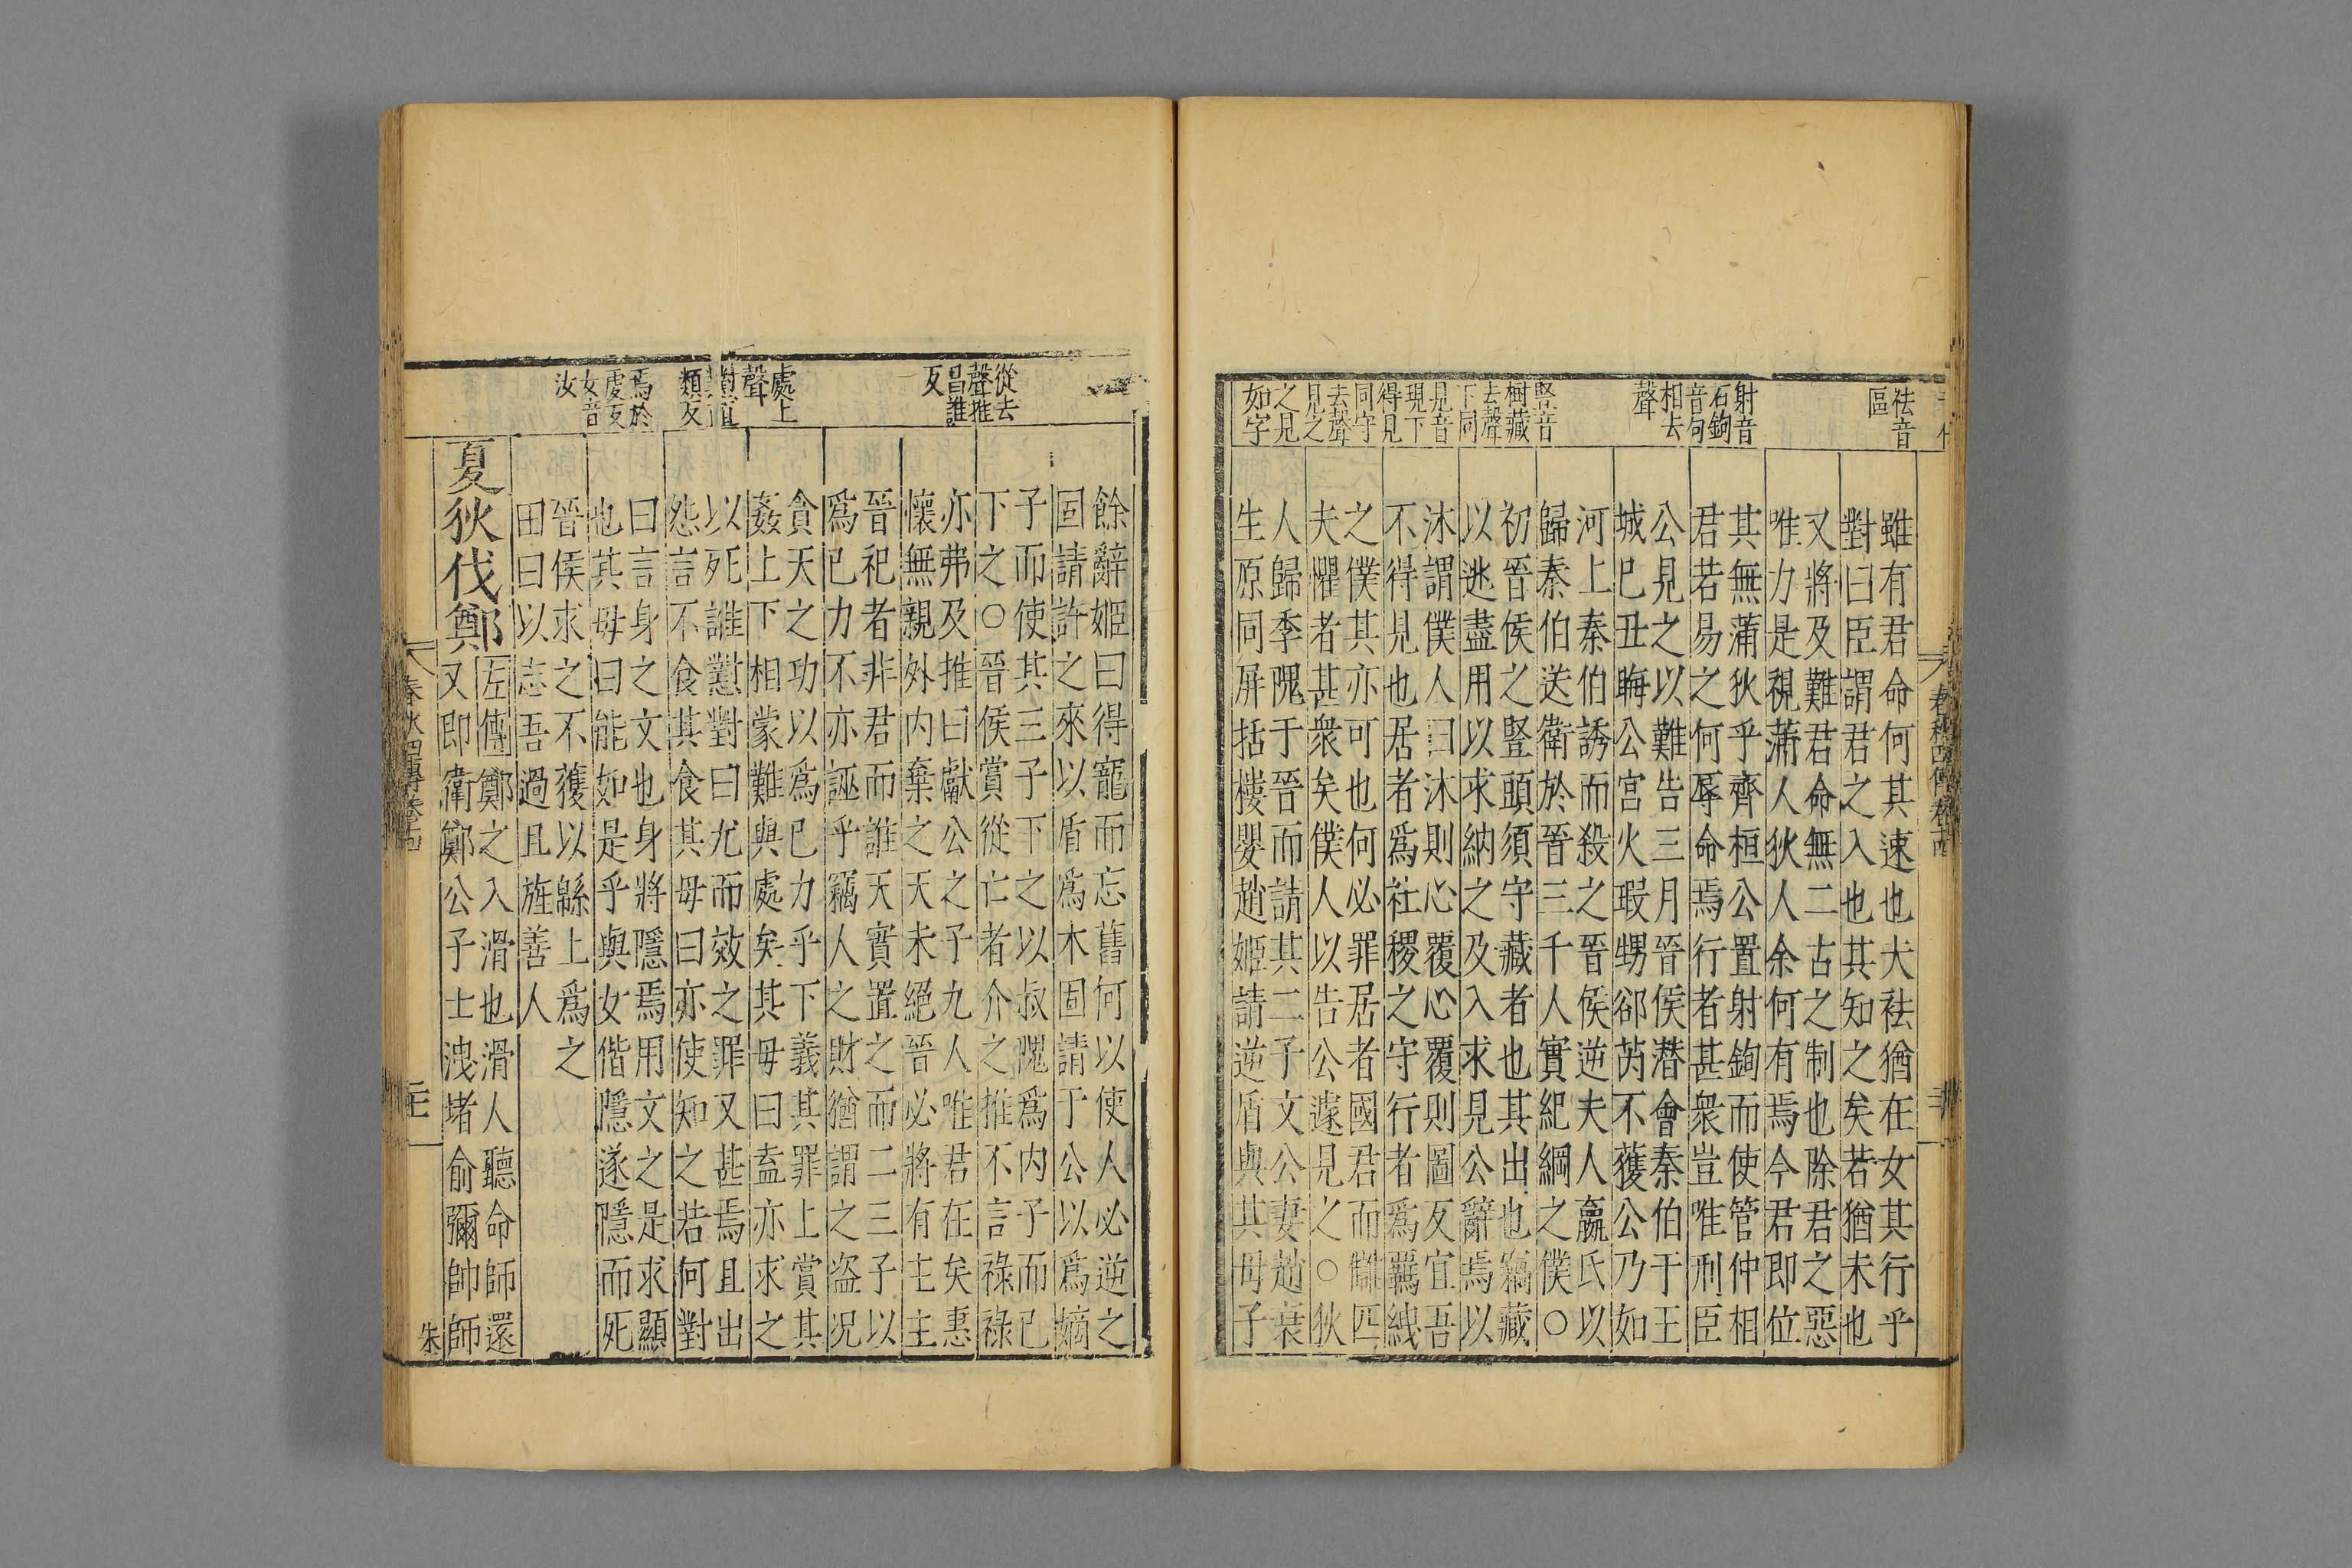 袪音
區
射音
石鉤
音句
相去
聲
豎音
樹藏
去聲
下同
見音
現下
得見
同守
去聲
見之
之見
如字
雖有君命何其速也夫袪猶在女其行乎
對曰臣謂君之入也其知之矣若猶未也
又將及難君命無二古之制也除君之惡
唯力是視蒲人狄人余何有焉今君即位
其無蒲狄乎齊桓公置射鉤而使管仲相
君若易之何辱命焉行者甚衆豈唯刑臣
公見之以難告三月晉侯潛會秦伯于王
城巳丑晦公宮火瑕甥郤芮不獲公乃如
河上秦伯誘而殺之晉侯逆夫人嬴氏以
歸秦伯送衛於晉三千人實紀綱之僕○
初晉侯之豎頭須守藏者也其出也竊藏
以逃盡用以求納之及入求見公辭焉以
沐謂僕人曰沐則心覆心覆則圖反宜吾
不得見也居者爲社稷之守行者爲羈絏
之僕其亦可也何必罪居者國君而讎匹
夫懼者甚衆矣僕人以告公遽見之○狄
人歸季隗于晉而請其二子文公妻趙衰
生原同屏括樓嬰趙姬請逆盾與其母子
春秋四傳卷十四
從去
聲推
昌誰
反
處上
聲
懟直
類反
焉於
虔反
女音
汝
餘辭姬曰得寵而忘舊何以使人必逆之
固請許之來以盾爲木固請于公以爲嫡
子而使其三子下之以叔隗爲内子而己
下之○晉侯賞從亡者介之推不言祿祿
亦弗及推曰獻公之子九人唯君在矣惠
懷無親外内棄之天未絕晉必將有主主
晉祀者非君而誰天實置之而二三子以
爲巳力不亦誣乎竊人之財猶謂之盗况
貪天之功以爲巳力乎下義其罪上賞其
姦上下相蒙難與處矣其母曰盍亦求之
以死誰懟對曰尤而效之罪又甚焉且出
怨言不食其食其母曰亦使知之若何對
曰言身之文也身將隱焉用文之是求顯
也其母曰能如是乎與女偕隱遂隱而死
晉侯求之不獲以緜上爲之
田曰以志吾過且旌善人
夏狄伐鄭
左傳鄭之入滑也滑人聽命師還
又即衛鄭公子士洩堵俞彌帥師
春秋四傳卷十四
朱